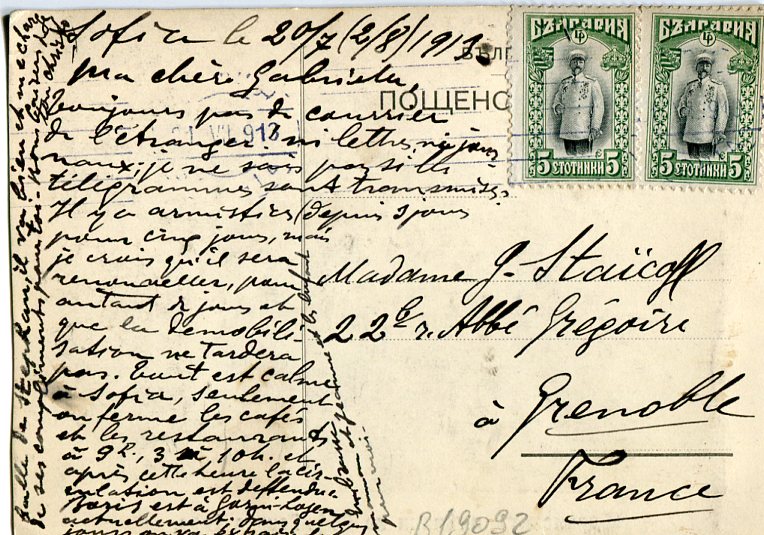 Sofia le 20/7 (2/8) 1913
Ma chère Gabrielle,
Toujours pas de courrier
de l'étranger: ni lettres, ni jour-
naux; je ne sais pas si les
télégrammes sont transmises.
Il y a armistice, depuis 3 jours
pour cinq jours, mais
je crois qu'il sera
renouveller, pour
autant de jours et
que la démobili-
sation ne tardera
pas. Tout est calme
à Sofia, seulement
on ferme les cafés
et les restaurants
à 9h, 3 à 10h. et
après cette heure la cir-
culation est deffendue
Boris est à
actuellement; dans quelques
jours on va
de ses compliments pour toi.
va bien et me charge
БЪЛГ
ПОЩЕНС
VII 913
БЪЛГАРИЯ
5 СТОТИНКИ 5
БЪЛГАРИЯ
5 СТОТИНКИ 5
Madame G. Staïcoff
22 r. Abbé Grégoire
à Grenoble
France